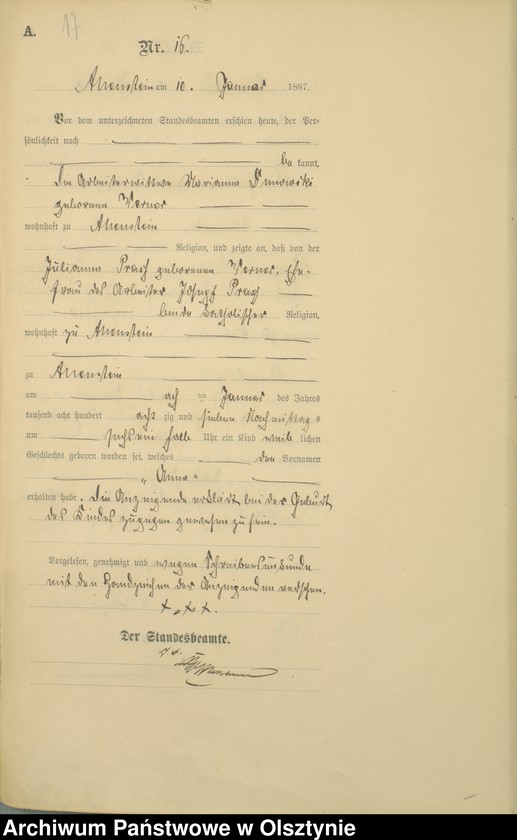 A.
17
Nr. 16.
Allenstein am 10. Januar 1887.
Vor dem unterzeichneten Standesbeamten erschien heute, der Per-
sönlichkeit nach
be kannt,
Die Arbeiterwittwe Marianna
geborene Werner
wohnhaft zu Allenstein
Religion, und zeigte an, daß von der
Julianna geborenen Werner, Ehe-
frau des Arbeiter Joseph
beide katholischer Religion,
wohnhaft zu Allenstein
zu Allenstein
am acht ten Januar des Jahres
tausend acht hundert acht zig und sieben Nachmittags
um sechs ein halb Uhr ein Kind weib lichen
Geschlechts geboren worden sei, welches den Vornamen
„Anna“
erhalten habe. Die Anzeigende erklärt bei der Geburt
des Kindes zugegen gewesen zu sein.
Vorgelesen, genehmigt und wegen Schreibensunkunde
mit den Handzeichen der Anzeigenden versehen.
+ + +.
Der Standesbeamte.
Archiwum Państwowe w Olsztynie